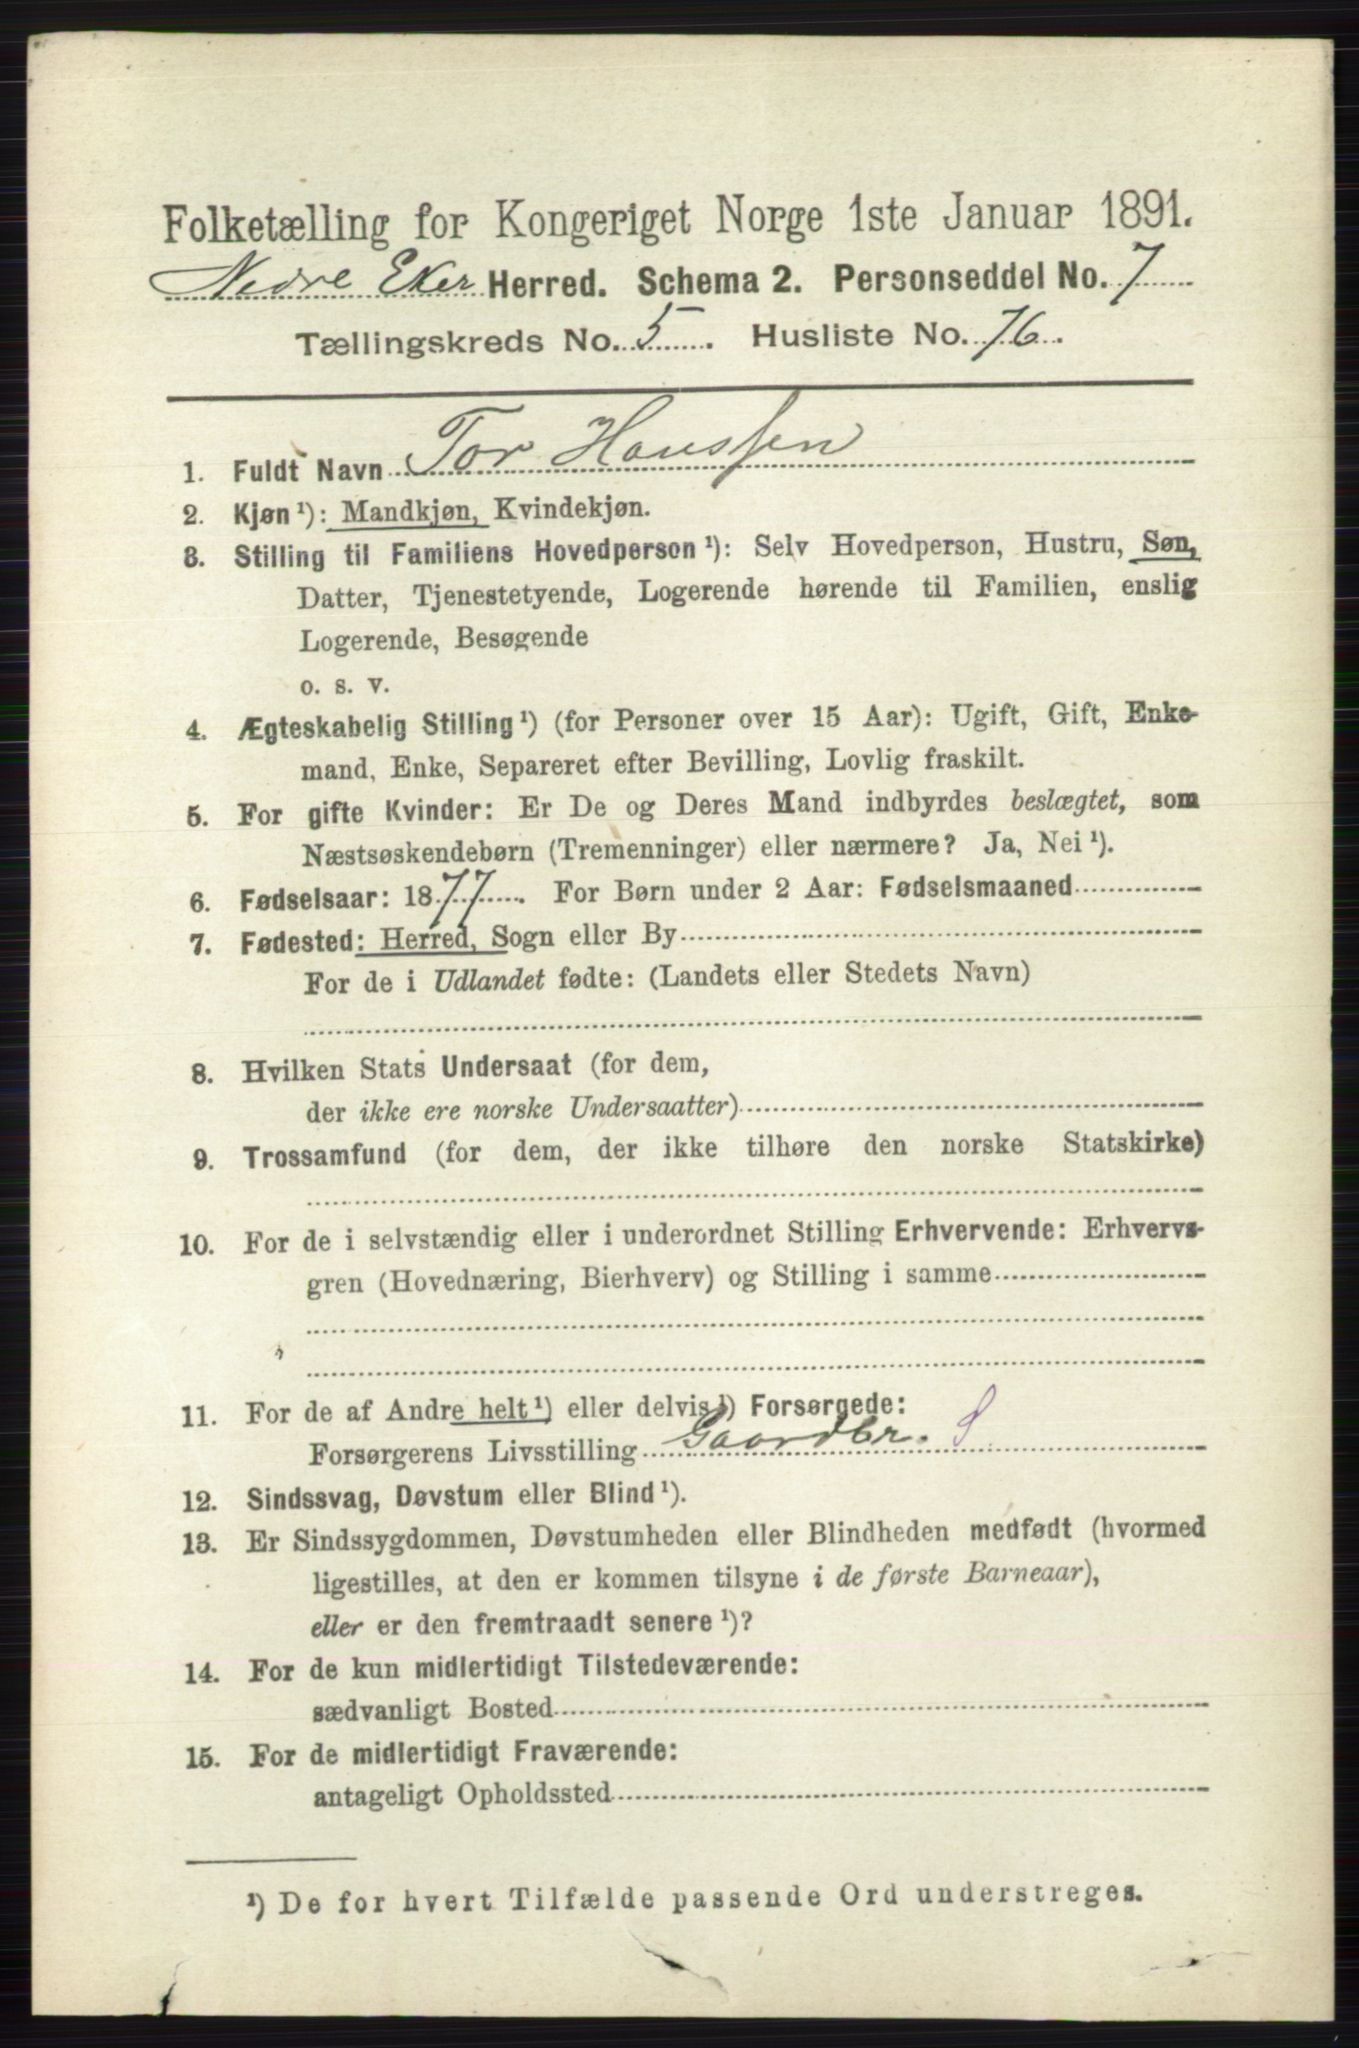 Folketælling for Kongeriget Norge 1ste Januar 1891.
Nedre Eker Herred. Schema 2. Personseddel No. 7
Tællingskreds No. 5. Husliste No. 76.
1. Fuldt Navn Tor Hanssen
2. Kjøn ¹): Mandkjøn, Kvindekjøn.
3. Stilling til Familiens Hovedperson ¹): Selv Hovedperson, Hustru, Søn,
Datter, Tjenestetyende, Logerende hørende til Familien, enslig
Logerende, Besøgende
o. s. v.
4. Ægteskabelig Stilling ¹) (for Personer over 15 Aar): Ugift, Gift, Enke-
mand, Enke, Separeret efter Bevilling, Lovlig fraskilt.
5. For gifte Kvinder: Er De og Deres Mand indbyrdes beslægtet, som
Næstsøskendebørn (Tremenninger) eller nærmere? Ja, Nei ¹).
6. Fødselsaar: 1877. For Børn under 2 Aar: Fødselsmaaned
7. Fødested: Herred, Sogn eller By
For de i Udlandet fødte: (Landets eller Stedets Navn)
8. Hvilken Stats Undersaat (for dem,
der ikke ere norske Undersaatter)
9. Trossamfund (for dem, der ikke tilhøre den norske Statskirke)
10. For de i selvstændig eller i underordnet Stilling Erhvervende: Erhvervs-
gren (Hovednæring, Bierhverv) og Stilling i samme
11. For de af Andre helt ¹) eller delvis ¹) Forsørgede:
Forsørgerens Livsstilling Gaardbr. S
12. Sindssvag, Døvstum eller Blind ¹).
13. Er Sindssygdommen, Døvstumheden eller Blindheden medfødt (hvormed
ligestilles, at den er kommen tilsyne i de første Barneaar),
eller er den fremtraadt senere ¹)?
14. For de kun midlertidigt Tilstedeværende:
sædvanligt Bosted
15. For de midlertidigt Fraværende:
antageligt Opholdssted
¹) De for hvert Tilfælde passende Ord understreges.